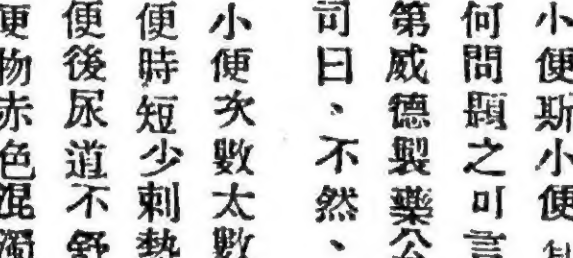 小便斯小便
何問題之可言
第威德製藥公
司曰、不然、
小便次數太數
便時短少刺熱
便後尿道不舒
便物赤色混濁